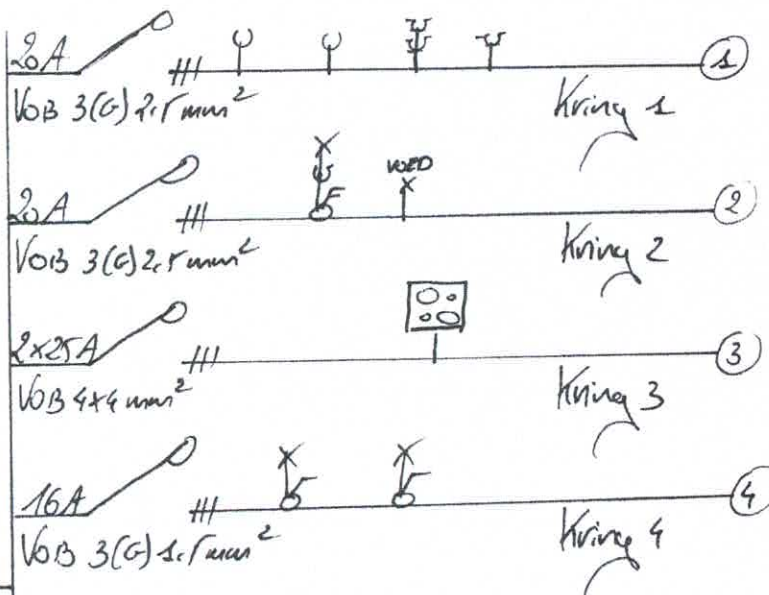 20A
1
VOB 3(G) 2.5 mm²
Kring 1
20A
2
VOB 3(G) 2.5 mm²
Kring 2
2x25A
3
VOB 4x4 mm²
Kring 3
16A
4
VOB 3(G) 1.5 mm²
Kring 4